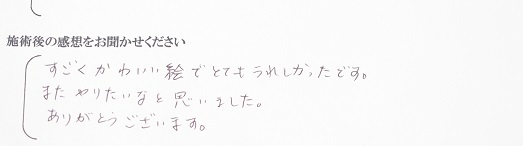 施術後の感想をお聞かせください
すごくかわいい絵でとてもうれしかったです。
またやりたいなと思いました。
ありがとうございます。